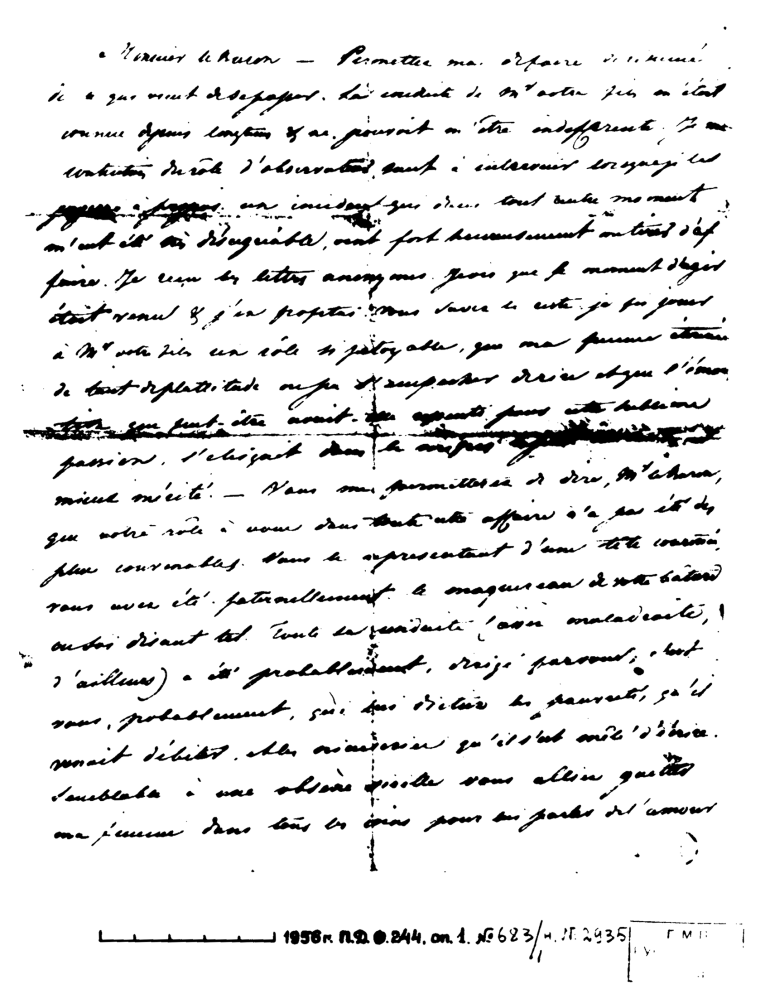 Monsieur le Baron — Permettez moi de faire le résumé
de ce qui vient de se passer. La conduite de Mr votre fils m'était
connue depuis longtems & ne pouvoit m'être indifferente. Je me
contentois du rôle d'observateur, sauf à intervenir lorsque je le
jugerois à propos. un incident qui dans tout autre moment
m'eut été très désagréable, vint fort heureusement me tirer d'af
faire. Je reçu les lettres anonymes. Je vis que le moment d'agir
était venu & j'en profitai. Vous savez le reste: je fis jouer
à Mr votre fils un rôle si pitoyable, que ma femme étonnée
de tant de platitude ne pu s'empecher de rire et que l'émo
tion que peut-être avoit-elle ressentie pour cette sublime
passion, s'éteignit dans le mépris
mieux mérité. — Vous me permetterez de dire, Mr le Baron,
que votre rôle à vous dans toute cette affaire n'a pas été des
plus convenables. Vous le représentant d'une tête couronnée,
vous avez été paternellement le maquereau de votre bâtard
ou soi disant tel. Toute sa conduite (assez maladroite,
d'ailleurs) a été probablement, dirigé par vous; c'est
vous, probablement, qui lui dictiez les pauvretés, qu'il
venait débiter, et les niaiseries qu'il s'est mêlé d'écrire.
Semblable à une obsène vieille vous alliez guetter
ma femme dans tous les coins pour lui parler de l'amour
1956 г. П.Д. Ф. 244, оп. 1. № 683/н. N. 2935